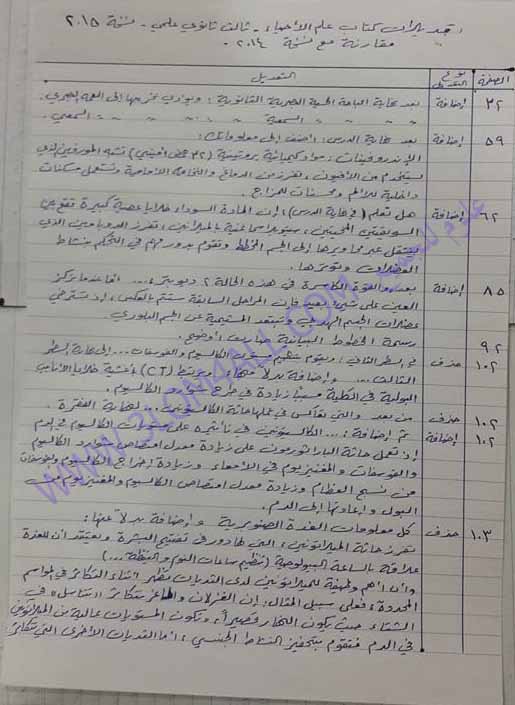 تعديلات كتاب علم الأحياء - ثالث ثانوي علمي - نسخة ٢٠١٥
مقارنة مع نسخة ٢٠١٤ -
الصفحة نوع التعديل التعديل
٣٢ إضافة بعد نهاية الباحة الحسية البصرية الثانوية: ويؤدي تخريبها إلى العمه البصري.
السمعية السمعي.
٥٩ إضافة بعد نهاية الدرس: أضف إلى معلوماتك:
الإندروفينات: مواد كيميائية بروتينية (٣٢ حمض أميني) تشبه المورفين الذي
يستخدم من الأفيون، تفرز من الدماغ والنخامة الأمامية وتستعمل مسكنات
داخلية للألم ومحسنات للمزاج.
٦٢ إضافة هل تعلم (في نهاية الدرس): إن المادة السوداء خلايا عصبية كبيرة تقع بين
السويقتين المخيتين، سيتوبلاسما غنية بالميلانين، تفرز الدوبامين الذي
ينتقل عبر محاويرها إلى الجسم المخطط وتقوم بدور مهم في التحكم بنشاط
العضلات وتوترها.
٨٥ إضافة بعد والقوة الكاسرة في هذه الحالة ٢ ديوبتر... أما عندما تركز
العين على شيء بعيد فإن المراحل السابقة ستتم بالعكس، إذ تسترخي
عضلات الجسم الهدبي وتبتعد المشيمية عن الجسم البلوري
٩٢ رسمة الخطوط البيانية صارت أوضح.
١٠٢ حذف في السطر الثاني: ويقوم بتنظيم مستوى الكالسيوم والفوسفات... إلى نهاية السطر
الثالث... وإضافة بدلاً منها: ويرتبط (CT) بأغشية خلايا الأنابيب
البولية في الكلية مسبباً زيادة في طرح الكالسيوم.
١٠٢ حذف من بعد والتي تعاكس في عملها حاثة الكالسيتونين... لنهاية الفقرة.
١٠٢ إضافة تم إضافة: ... الكالسيتونين في تأثيره على شوارد الكالسيوم في الدم
إذ تعمل حاثة الباراثورمون على زيادة معدل امتصاص شوارد الكالسيوم
والفوسفات والمغنيزيوم في الأمعاء وزيادة إخراج الكالسيوم والفوسفات
من نسج العظام وزيادة معدل امتصاص الكالسيوم والمغنيزيوم من
البول وإعادتها إلى الدم.
١٠٣ حذف كل معلومات الغدة الصنوبرية وإضافة بدلاً عنها:
تفرز حاثة الميلاتونين، التي لها دور في تفتيح البشرة ويعتقد أن للغدة
علاقة بالساعة البيولوجية (تنظيم ساعات النوم واليقظة...)
وأن أهم وظيفة للميلاتونين لدى الثدييات تظهر أثناء التكاثر في المواسم
المحددة، فعلى سبيل المثال: إن الغزلان والماعز يتكاثر (تناسل) في
الشتاء حيث يكون النهار قصيراً، وتكون المستويات عالية من الميلاتونين
في الدم فتقوم بتحفيز النشاط الجنسي، أما الثدييات الأخرى التي تتكاثر
علوم للجميع
WWW.3LOM4ALL.COM